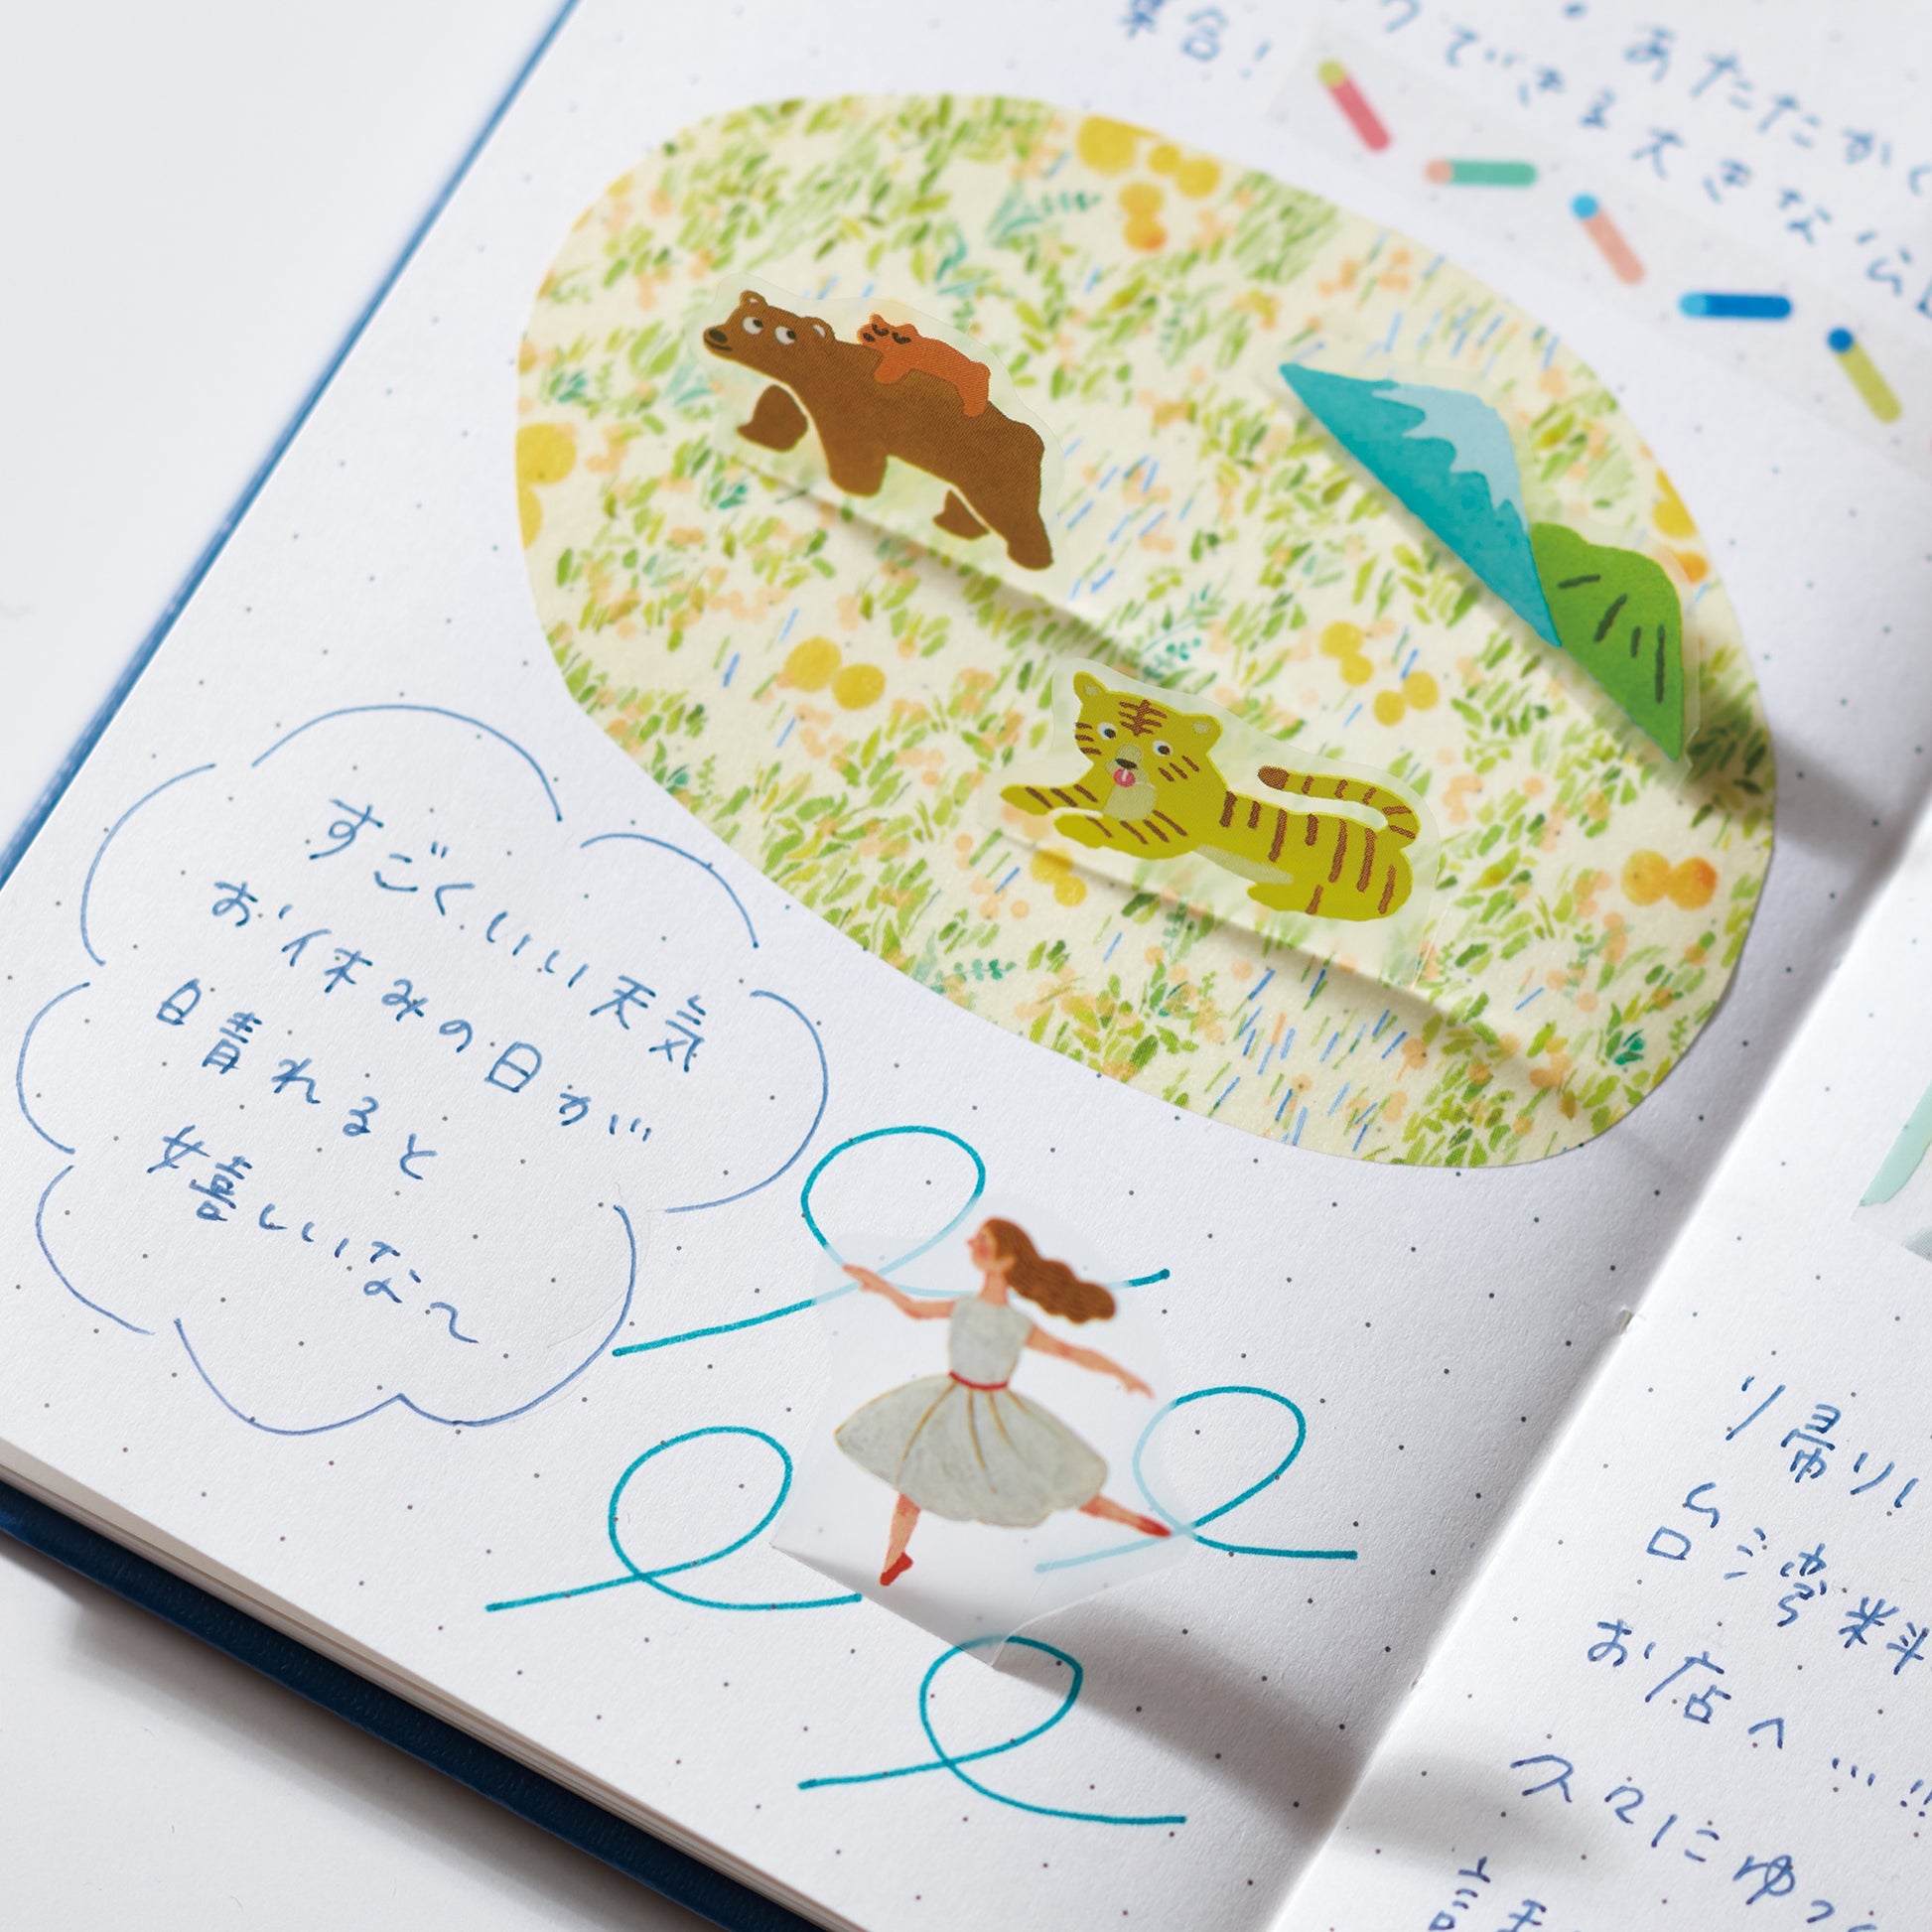 あたたかく
クできる大きな公
集合!
すごくいい天気
お休みの日が
日晴れると
嬉しいな〜
り帰りし
台湾料
お店へ…!!
久々にゆっ